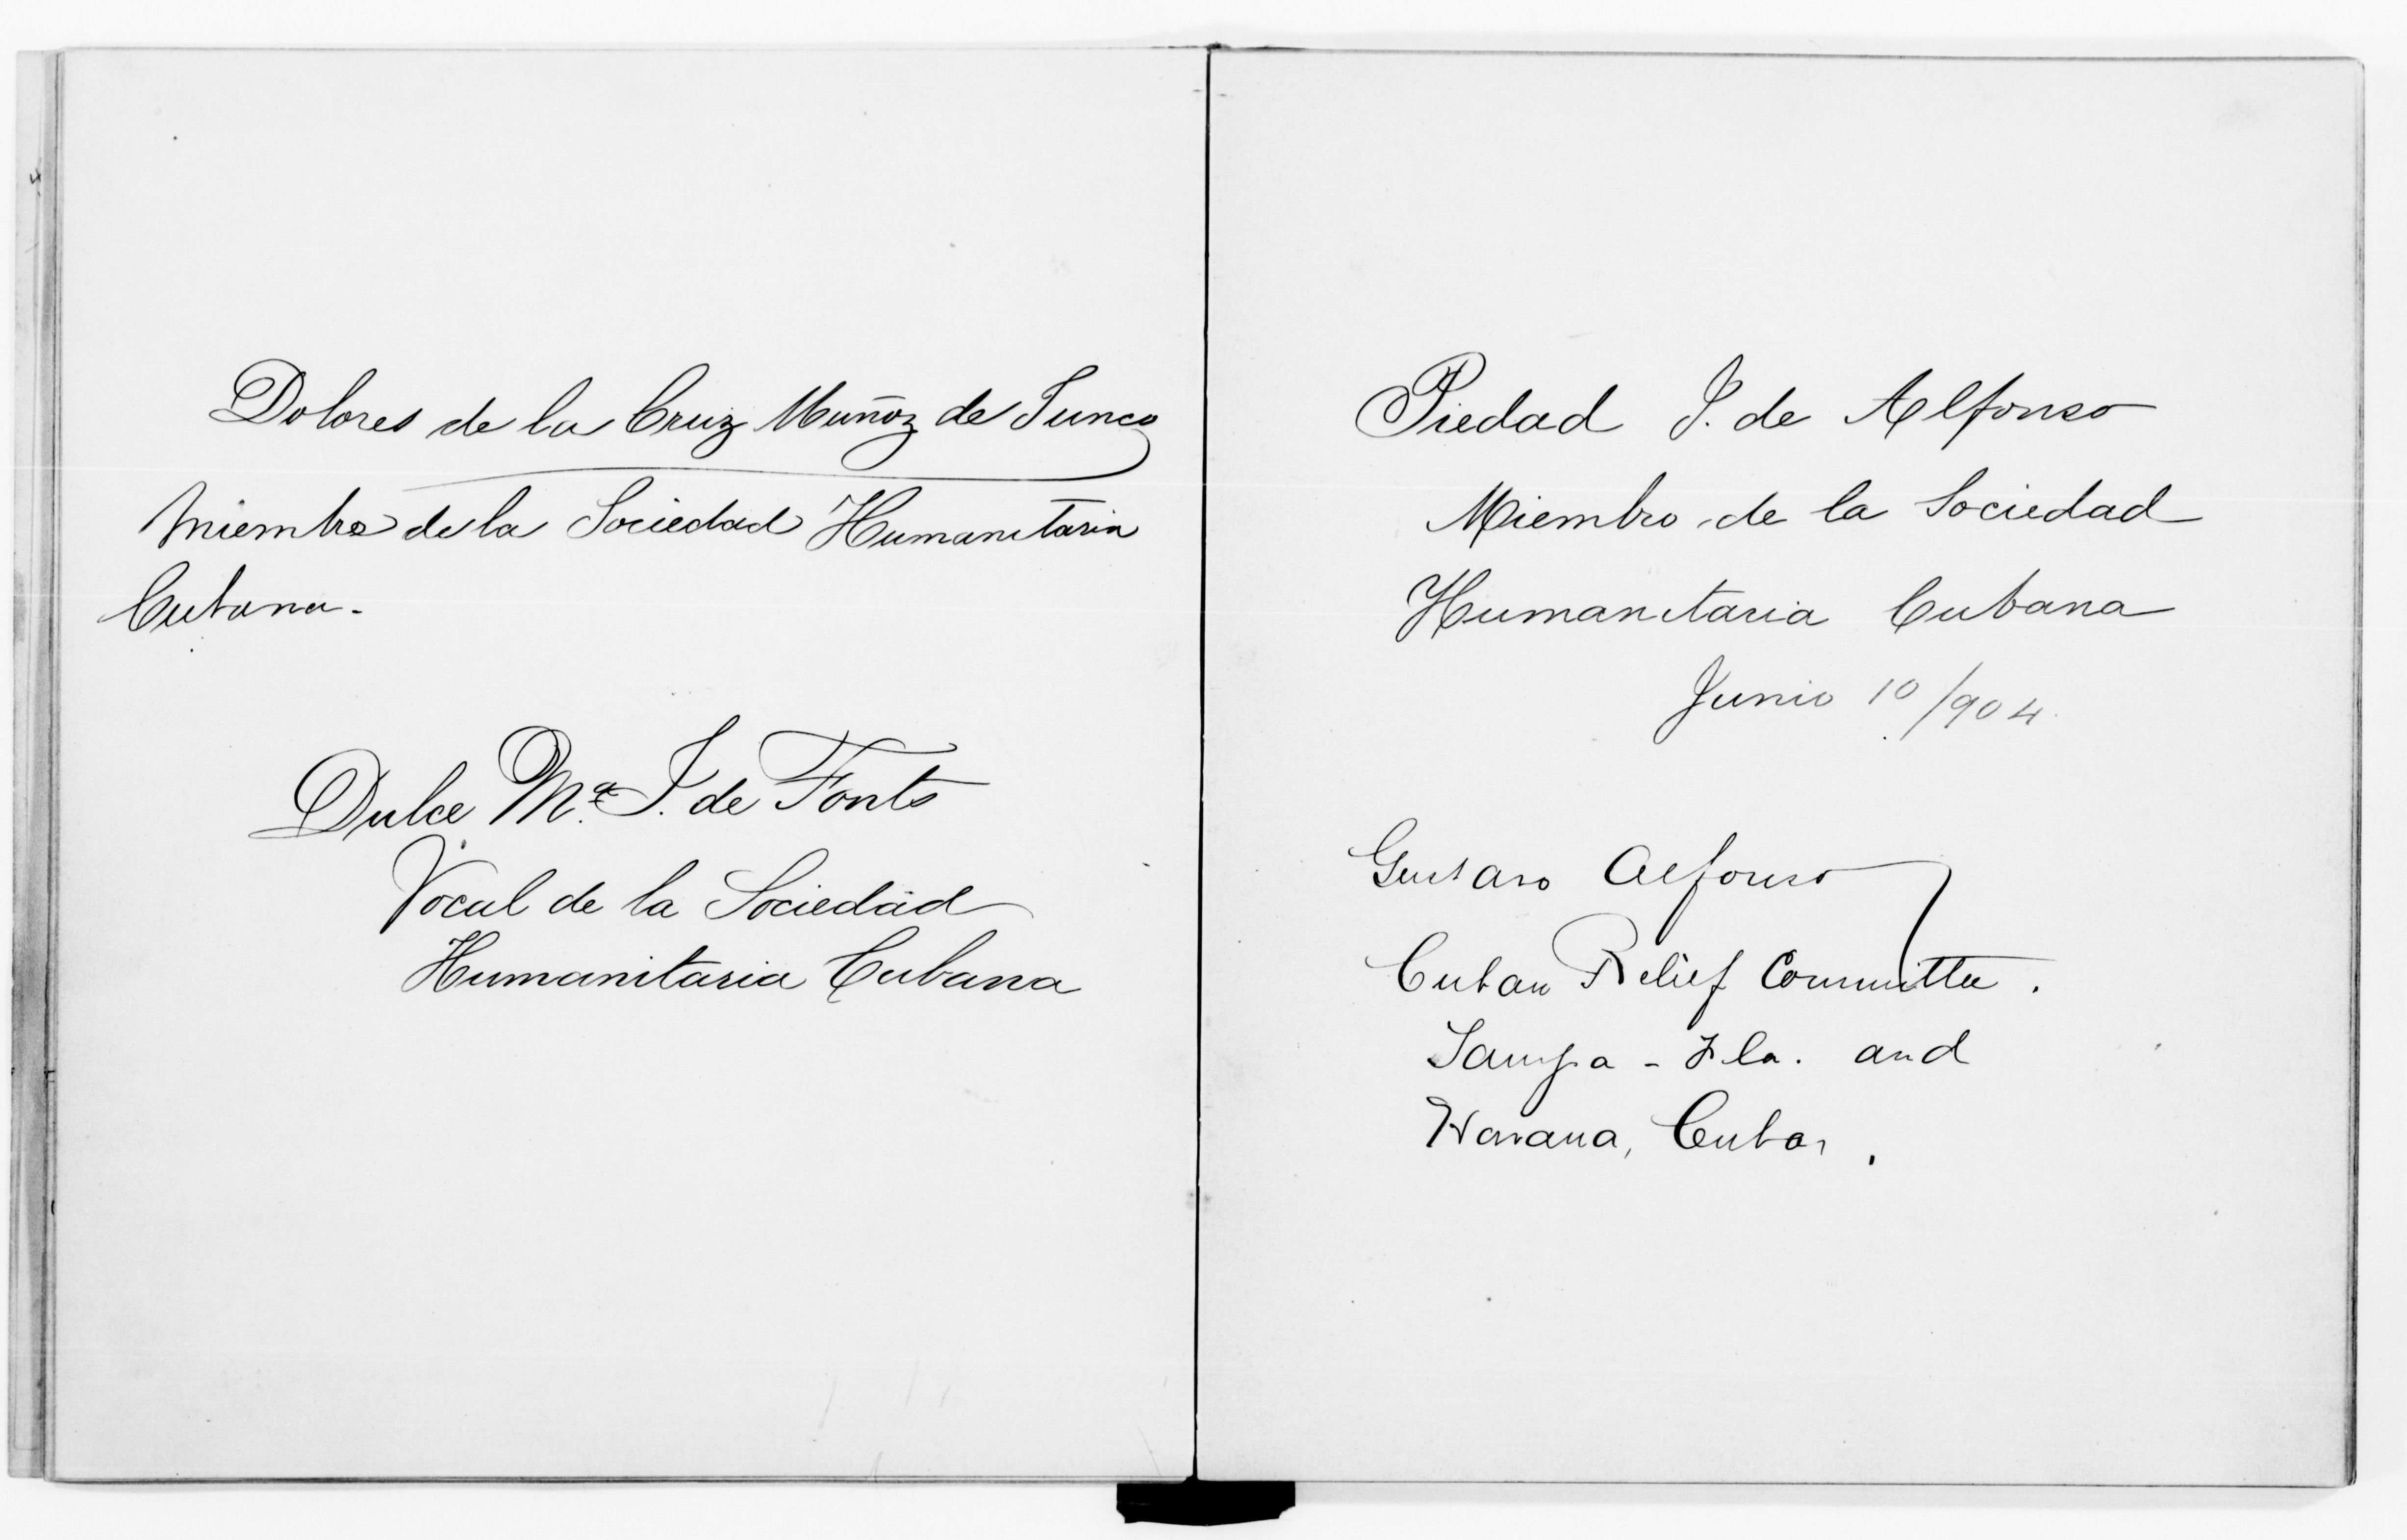 Dolores de la Cruz Muñoz de Junco
Miembro de la Sociedad Humanitaria
Cubana.
Dulce Mª J. de Fonts
Vocal de la Sociedad
Humanitaria Cubana
Piedad J. de Alfonso
Miembro de la Sociedad
Humanitaria Cubana
Junio 10/904.
Gustavo Alfonso
Cuban Relief Committee.
Tampa - Fla. and
Havana, Cuba.